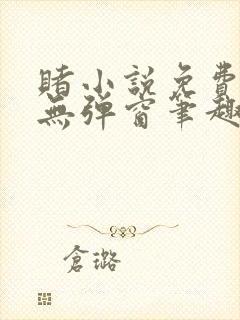 賭小說免費
無彈窗筆趣
倉璐